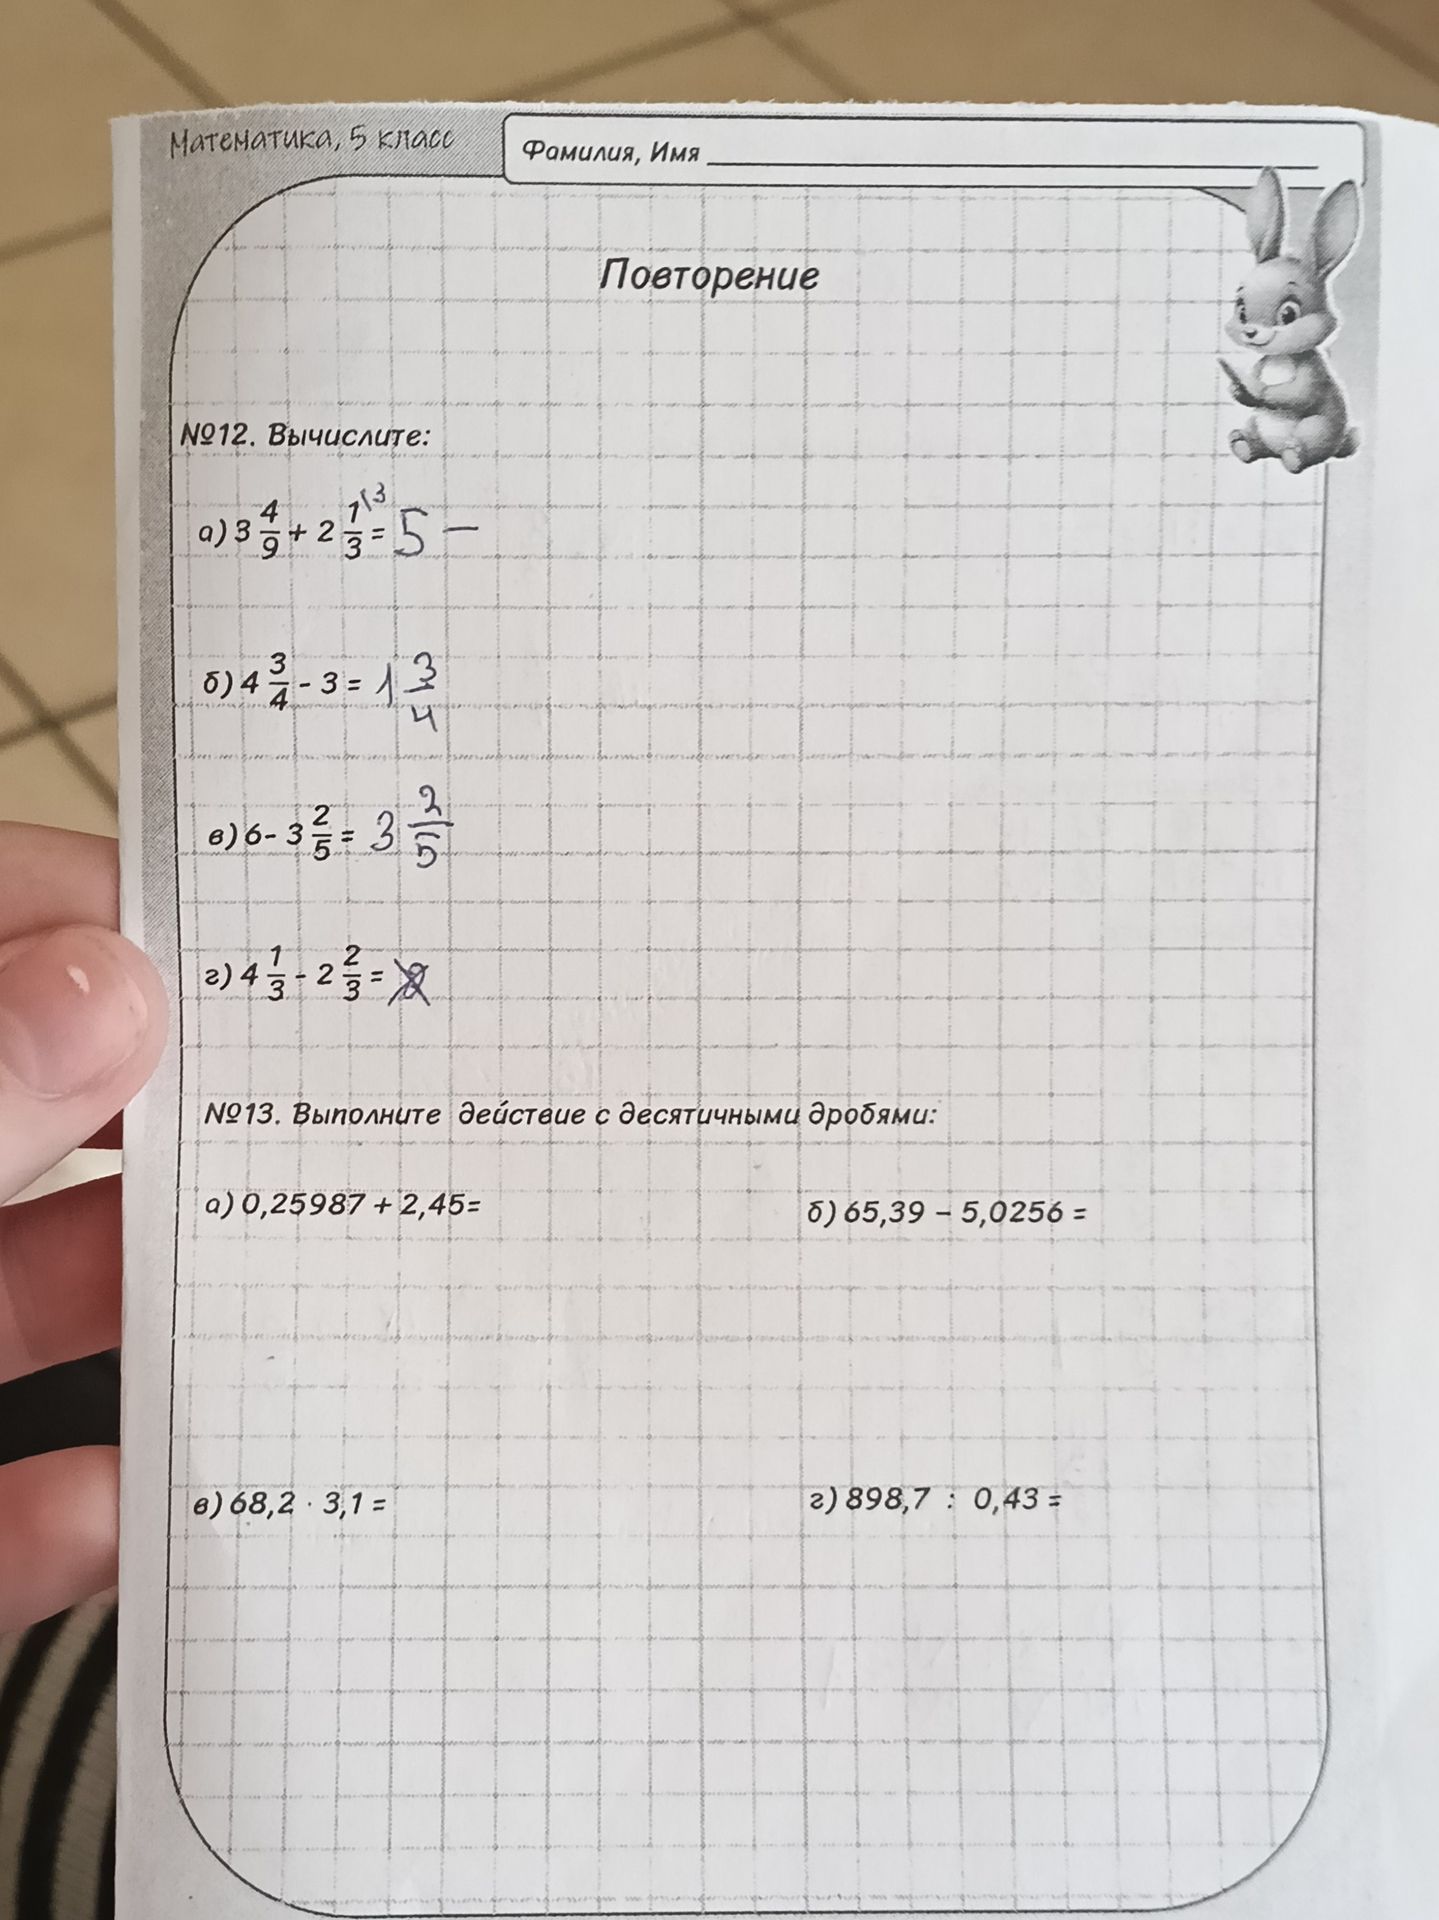 Математика, 5 класс
Фамилия, Имя
Повторение
№12. Вычислите:
а) 3 4/9 + 2 1/3 \3 = 5 —
б) 4 3/4 - 3 = 1 3/4
в) 6- 3 2/5 = 3 2/5
г) 4 1/3 - 2 2/3 =
№13. Выполните действие с десятичными дробями:
а) 0,25987 + 2,45=
б) 65,39 – 5,0256 =
в) 68,2 · 3,1 =
г) 898,7 : 0,43 =